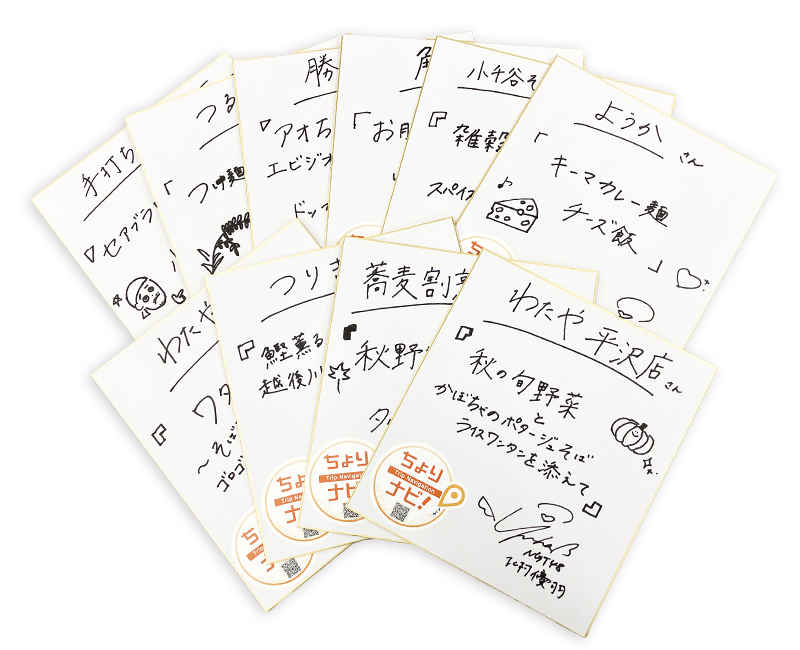 手打ち
『セアブラ
つる
「
つけ麺
勝
『アオ
エビジオ
ドッ
「お
小千谷そ
『雑穀
スパイ
ようか
さん
「
キーマカレー麺
チーズ飯
」
わたや
『
ワタ
〜そば
ゴロゴ
つり
『鰹薫る
越後川
蕎麦割烹
『秋野
わたや 平沢店さん
『
秋の旬野菜
と
かぼちゃのポタージュそば
ライスワンタンを添えて
』
NGT48
北村優羽
ちより
Trip Navigation
ナビ!
ちより
Trip Navigation
ナビ!
ちより
Trip Na
ナビ
ちより
Trip Na
ちよ